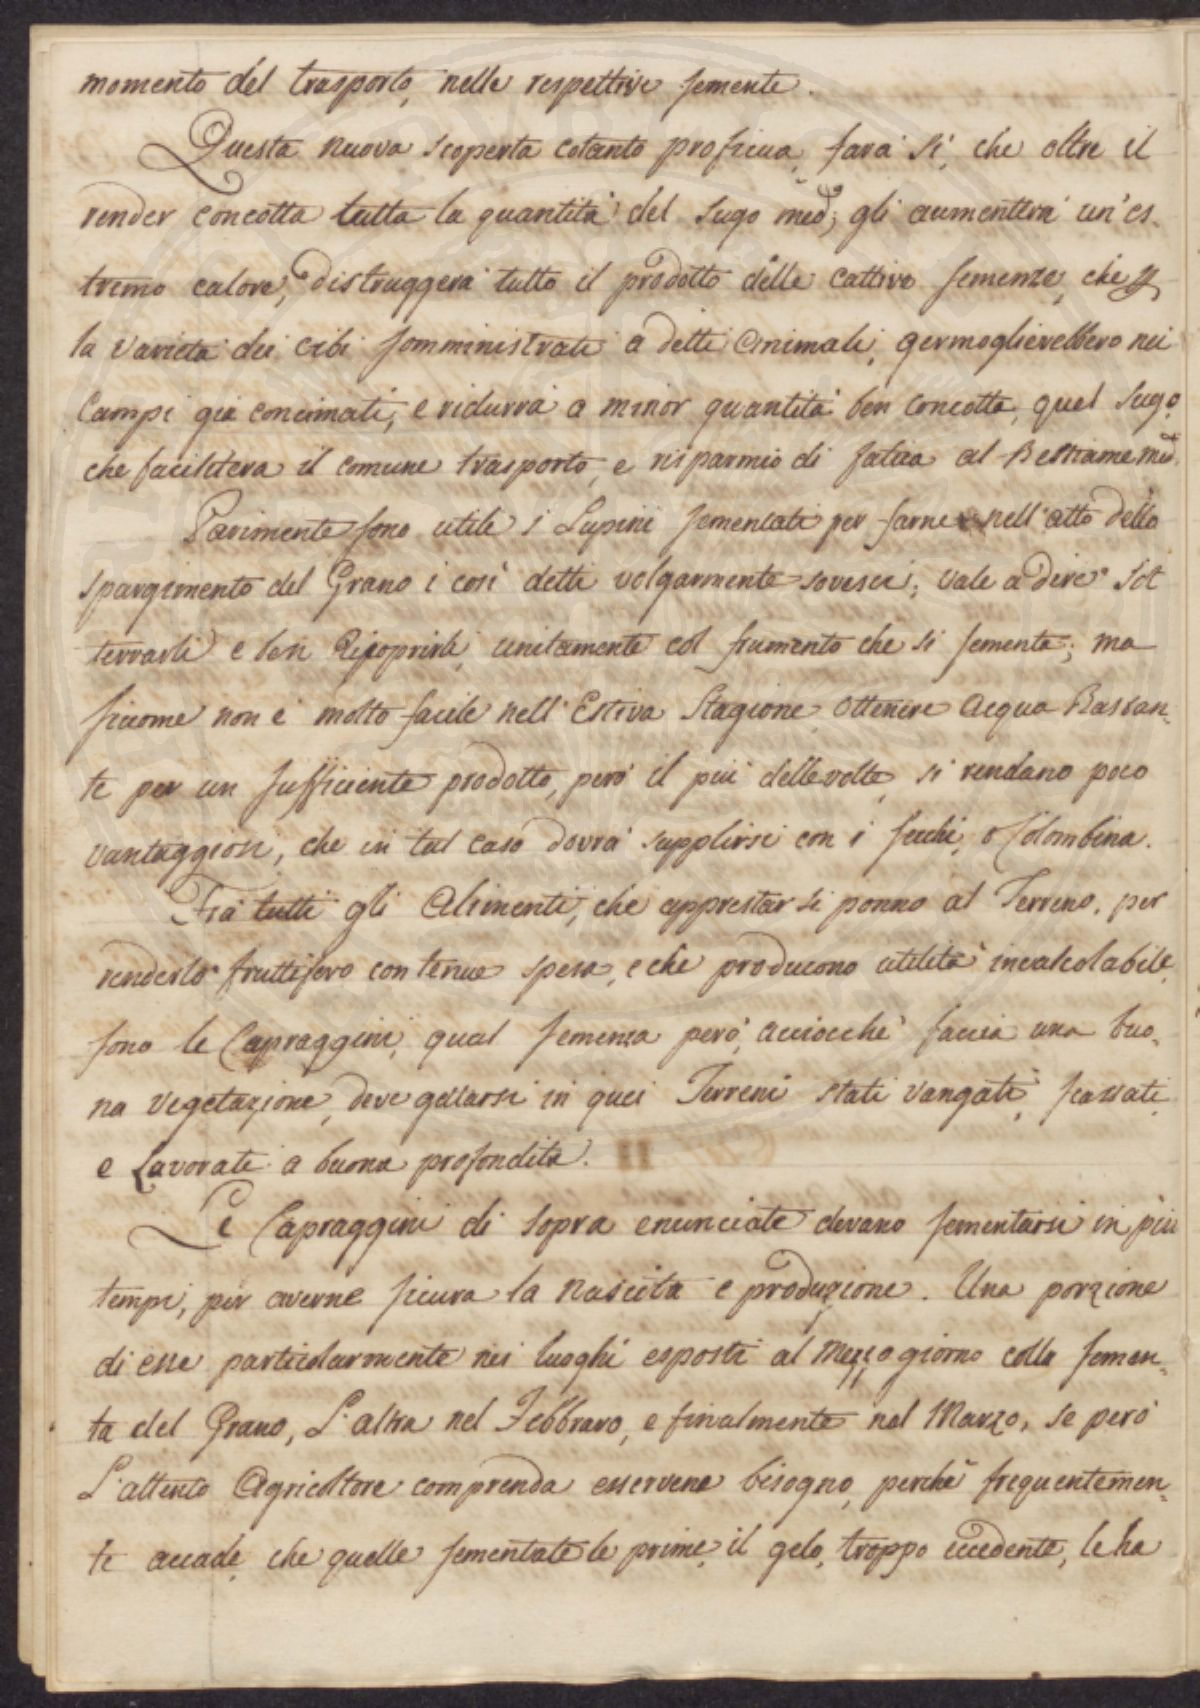 momento del trasporto, nelle respettive semente.
Questa nuova scoperta cotanto proficua, farà sì, che oltre il
render concotta tutta la quantità del Sugo med; gli aumenterà un'es-
tremo calore, distruggerà tutto il prodotto delle cattive semenze, che
la varietà dei cibi somministrati a detti Animali, germoglierebbero nei
Campi già concimati, e ridurrà a minor quantità ben concotta, quel Sugo,
che faciliterà il comune trasporto, e risparmio di fatica al Bestiame med.
Parimente sono utili i Lupini sementati per farne nell'atto dello
spargimento del Grano i così detti volgarmente sovesci; vale a dire Sot
terrarli e ben Ricoprirli, unitamente col frumento che si sementa; ma
siccome non è molto facile nell'Estiva Stagione, ottenere Acqua Bastan-
te per un sufficiente prodotto, però il più delle volte, si rendano poco
vantaggiosi, che in tal caso dovrà supplirsi con i secchi, o Colombina.
Frà tutti gli Alimenti, che apprestar si ponno al Terreno, per
renderlo fruttifero con tenue spesa, e che producono utilità incalcolabile,
sono le Capraggini, qual semenza però, acciocchè faccia una buo-
na vegetazione, deve gettarsi in quei Terreni stati vangati, scassati,
e Lavorati a buona profondità.
Le Capraggini di sopra enunciate devano sementarsi in più
tempi, per averne sicura la nascita e produzione. Una porzione
di esse particolarmente nei luoghi esposti al Mezzogiorno colla semen-
ta del Grano, L'altra nel Febbraro, e finalmente nel Marzo, se però
L'attento Agricoltore comprenda esservene bisogno, perchè frequentemen-
te accade, che quelle sementate le prime, il gelo, troppo eccedente, le ha